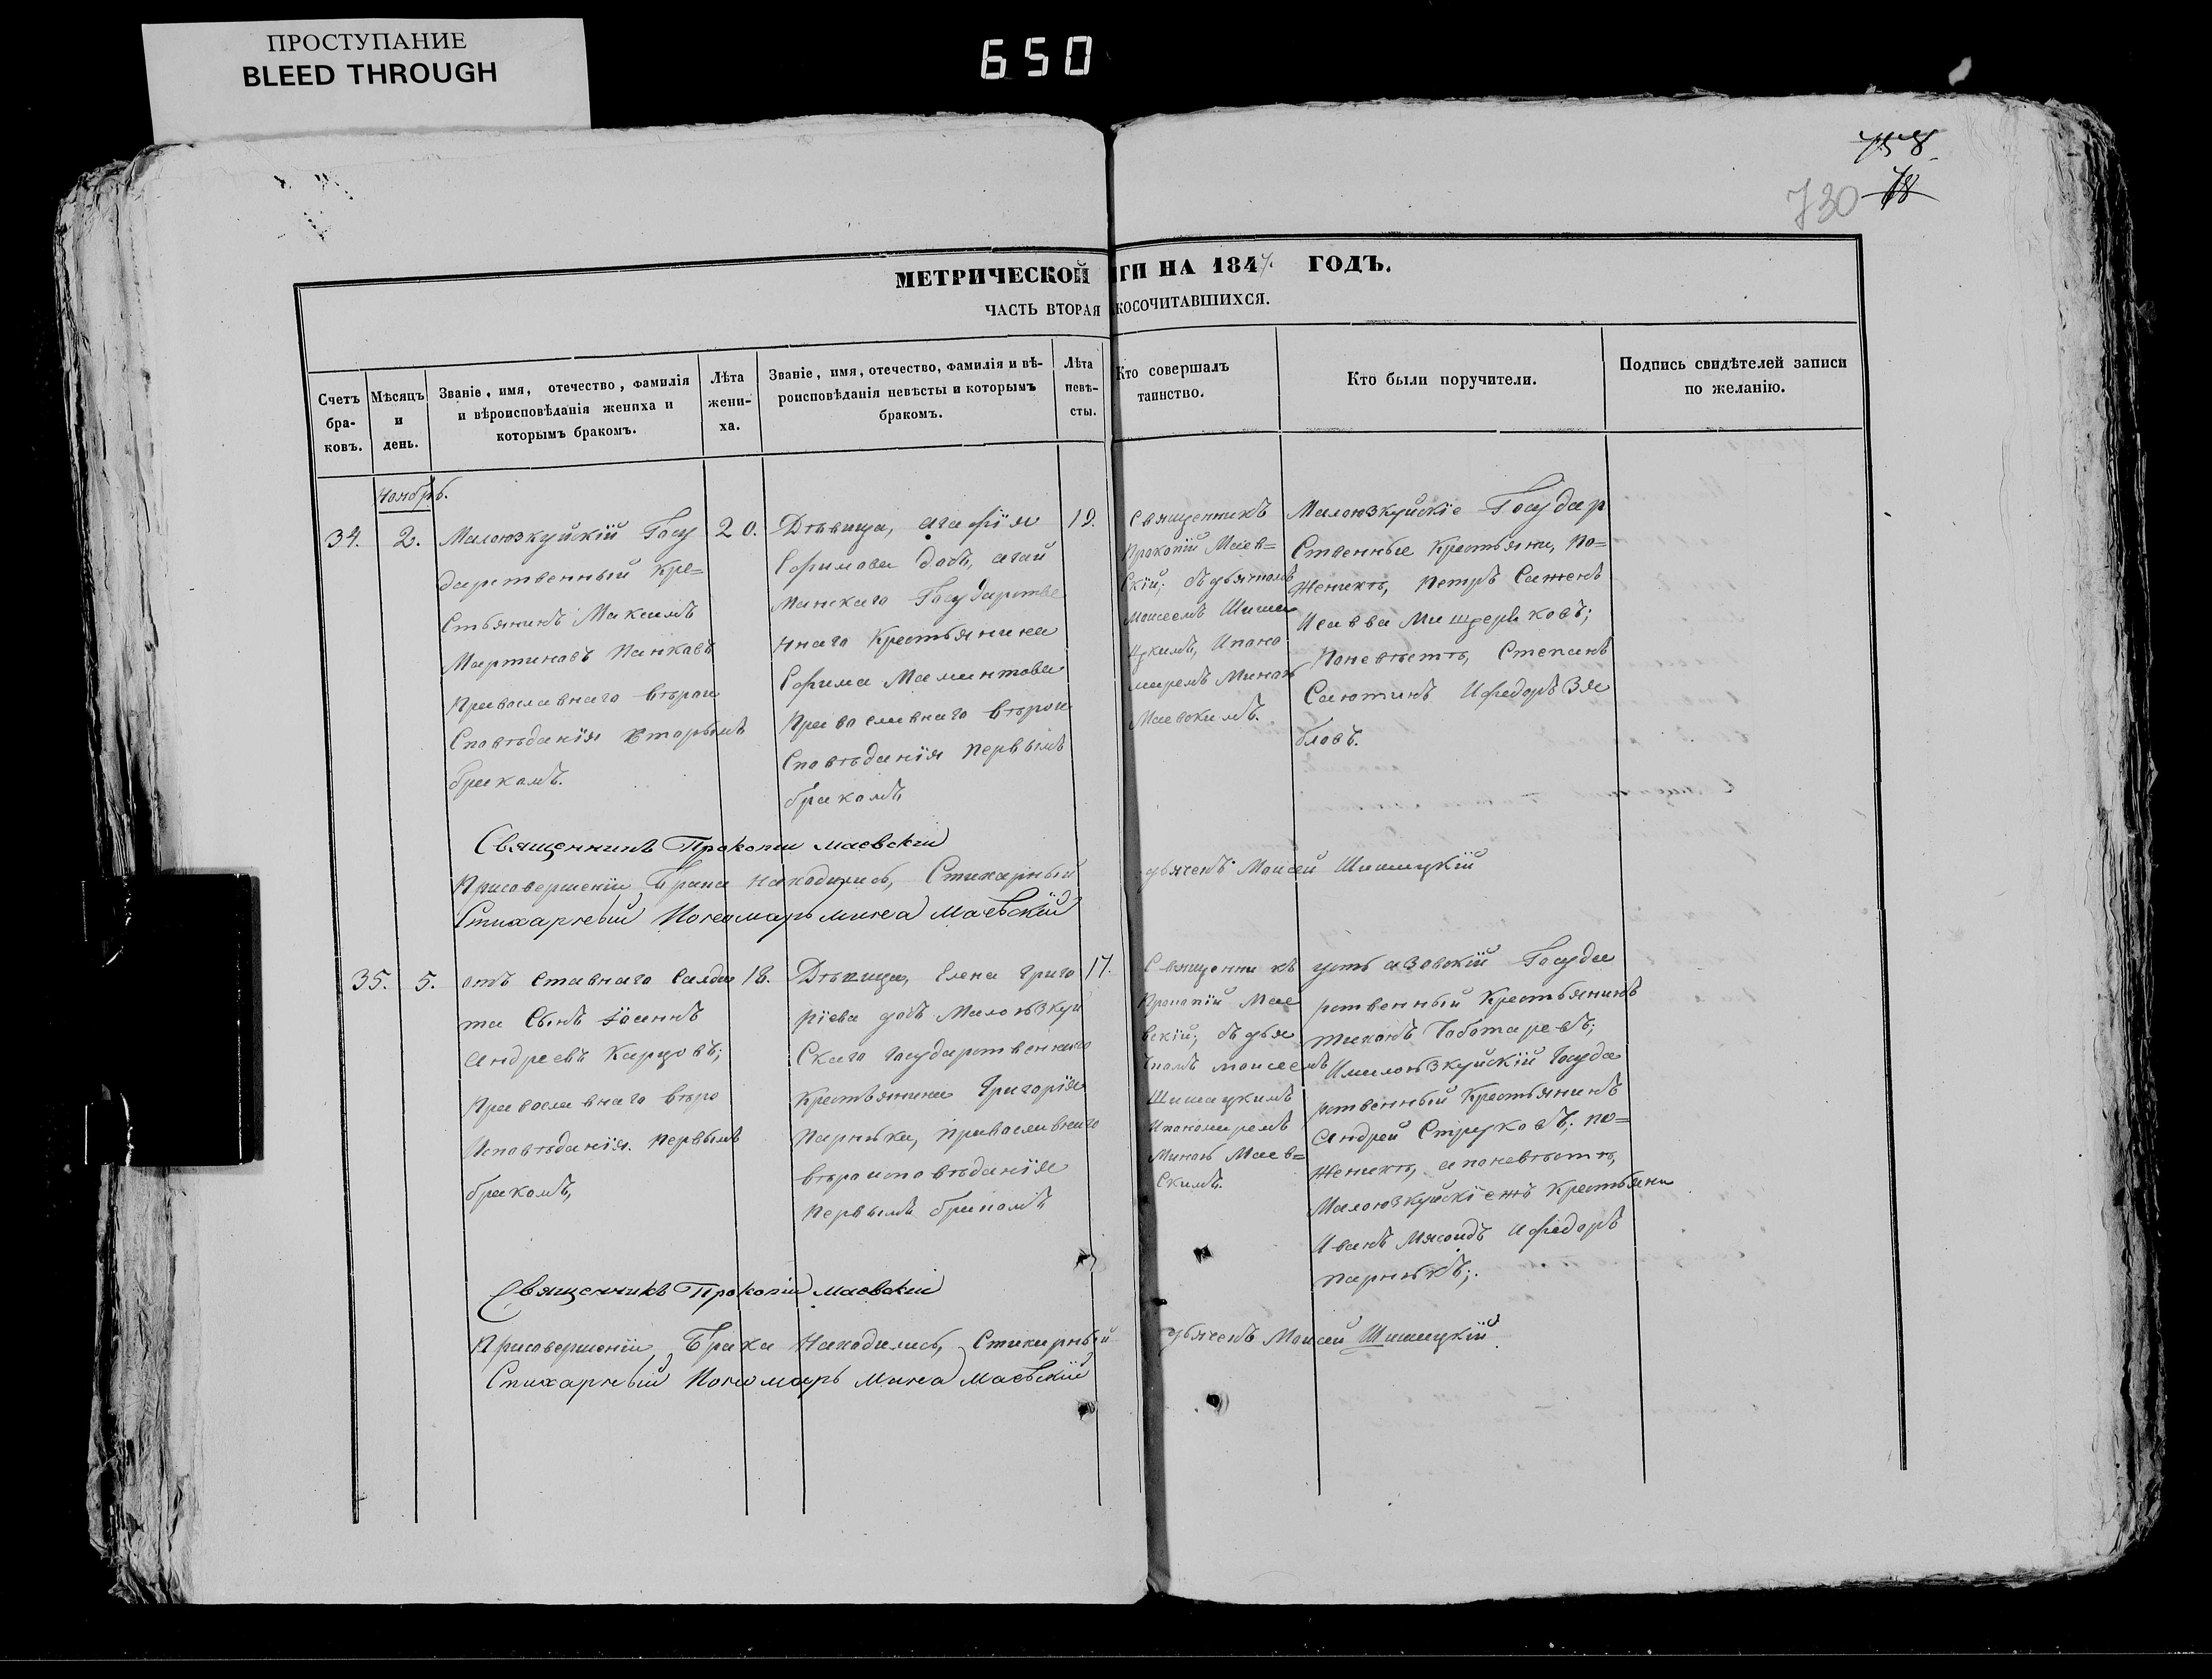 ПРОСТУПАНИЕ
BLEED THROUGH
650
758
730 78
МЕТРИЧЕСКОЙ ГИ НА 1847 ГОДЪ.
ЧАСТЬ ВТОРАЯ КОСОЧИТАВШИХСЯ.
Счетъ бра-ковъ.
Мѣсяцъ и день.
Званіе, имя, отечество, фамилія
и вѣроисповѣданія жениха и
которымъ бракомъ.
Лѣта жени-ха.
Званіе, имя, отечество, фамилія и вѣ-
роисповѣданія невѣсты и которымъ
бракомъ.
Лѣта невѣ-сты.
Кто совершалъ
таинство.
Кто были поручители.
Подпись свидѣтелей записи
по желанію.
Ноябрь.
34. 2.
Малоюзкуйскій Госу
дарственный Кре=
стьянинъ Максимъ
Мартиновъ Панковъ
Православнаго вѣрои
сповѣданія вторымъ
бракомъ.
20.
Дѣвица, агафія
Софимова дочь, агай
манскаго Государстве
ннаго Крестьянина
Софима Мамонтова
Православнаго вѣрои
сповѣданія первымъ
бракомъ
19.
Священникъ
Прокопій Маев=
скій, съ дьячкомъ
Моисеемъ Шиша
цкимъ, Ипоно
маремъ Миною
Маевскимъ.
Малоюзкуйскіе Государ
ственные Крестьяне, по=
женихѣ, Петръ Саженъ
Исавва Мищеряковъ;
Поневѣстѣ, Степанъ
Саютинъ Ифедоръ Зя
бловъ.
Священникъ Прокопій Маевскій
Присовершеніи Брака находились, Стихарный дьячекъ Моисей Шишацкій
Стихарный Пономарь Мина Маевскій
35. 5.
отъ ставнаго Салда
та Сынъ Іоаннъ
Андреевъ Карповъ;
Православнаго вѣро
Исповѣданія. первымъ
бракомъ,
18.
Дѣвица, Елена Григо
ріева дочь Малоюзкуй
скаго Государственнаго
Крестьянина Григорія
Парнюка, православнаго
вѣроисповѣданія
первымъ бракомъ
17.
Священникъ
Прокопій Мае
вскій, съ дья
чкомъ Моисеемъ
Шишацкимъ
Ипономаремъ
Миною Маев=
скимъ.
усть азовскій Госуда
рственный Крестьянинъ
Тихонъ Чоботаревъ;
Ималоюзкуйскій Госуда
рственный Крестьянинъ
Андрей Струковъ; по=
женихѣ, апоневѣстѣ,
Малоюзкуйскіежъ Крестьяни
Иванъ Мясоидъ Ифедоръ
Парнюкъ;.
Священникъ Прокопій Маевскій
Присовершеніи Брака Находились, Стихарный дьячекъ Моисей Шишацкій
Стихарный Пономарь Мина Маевскій